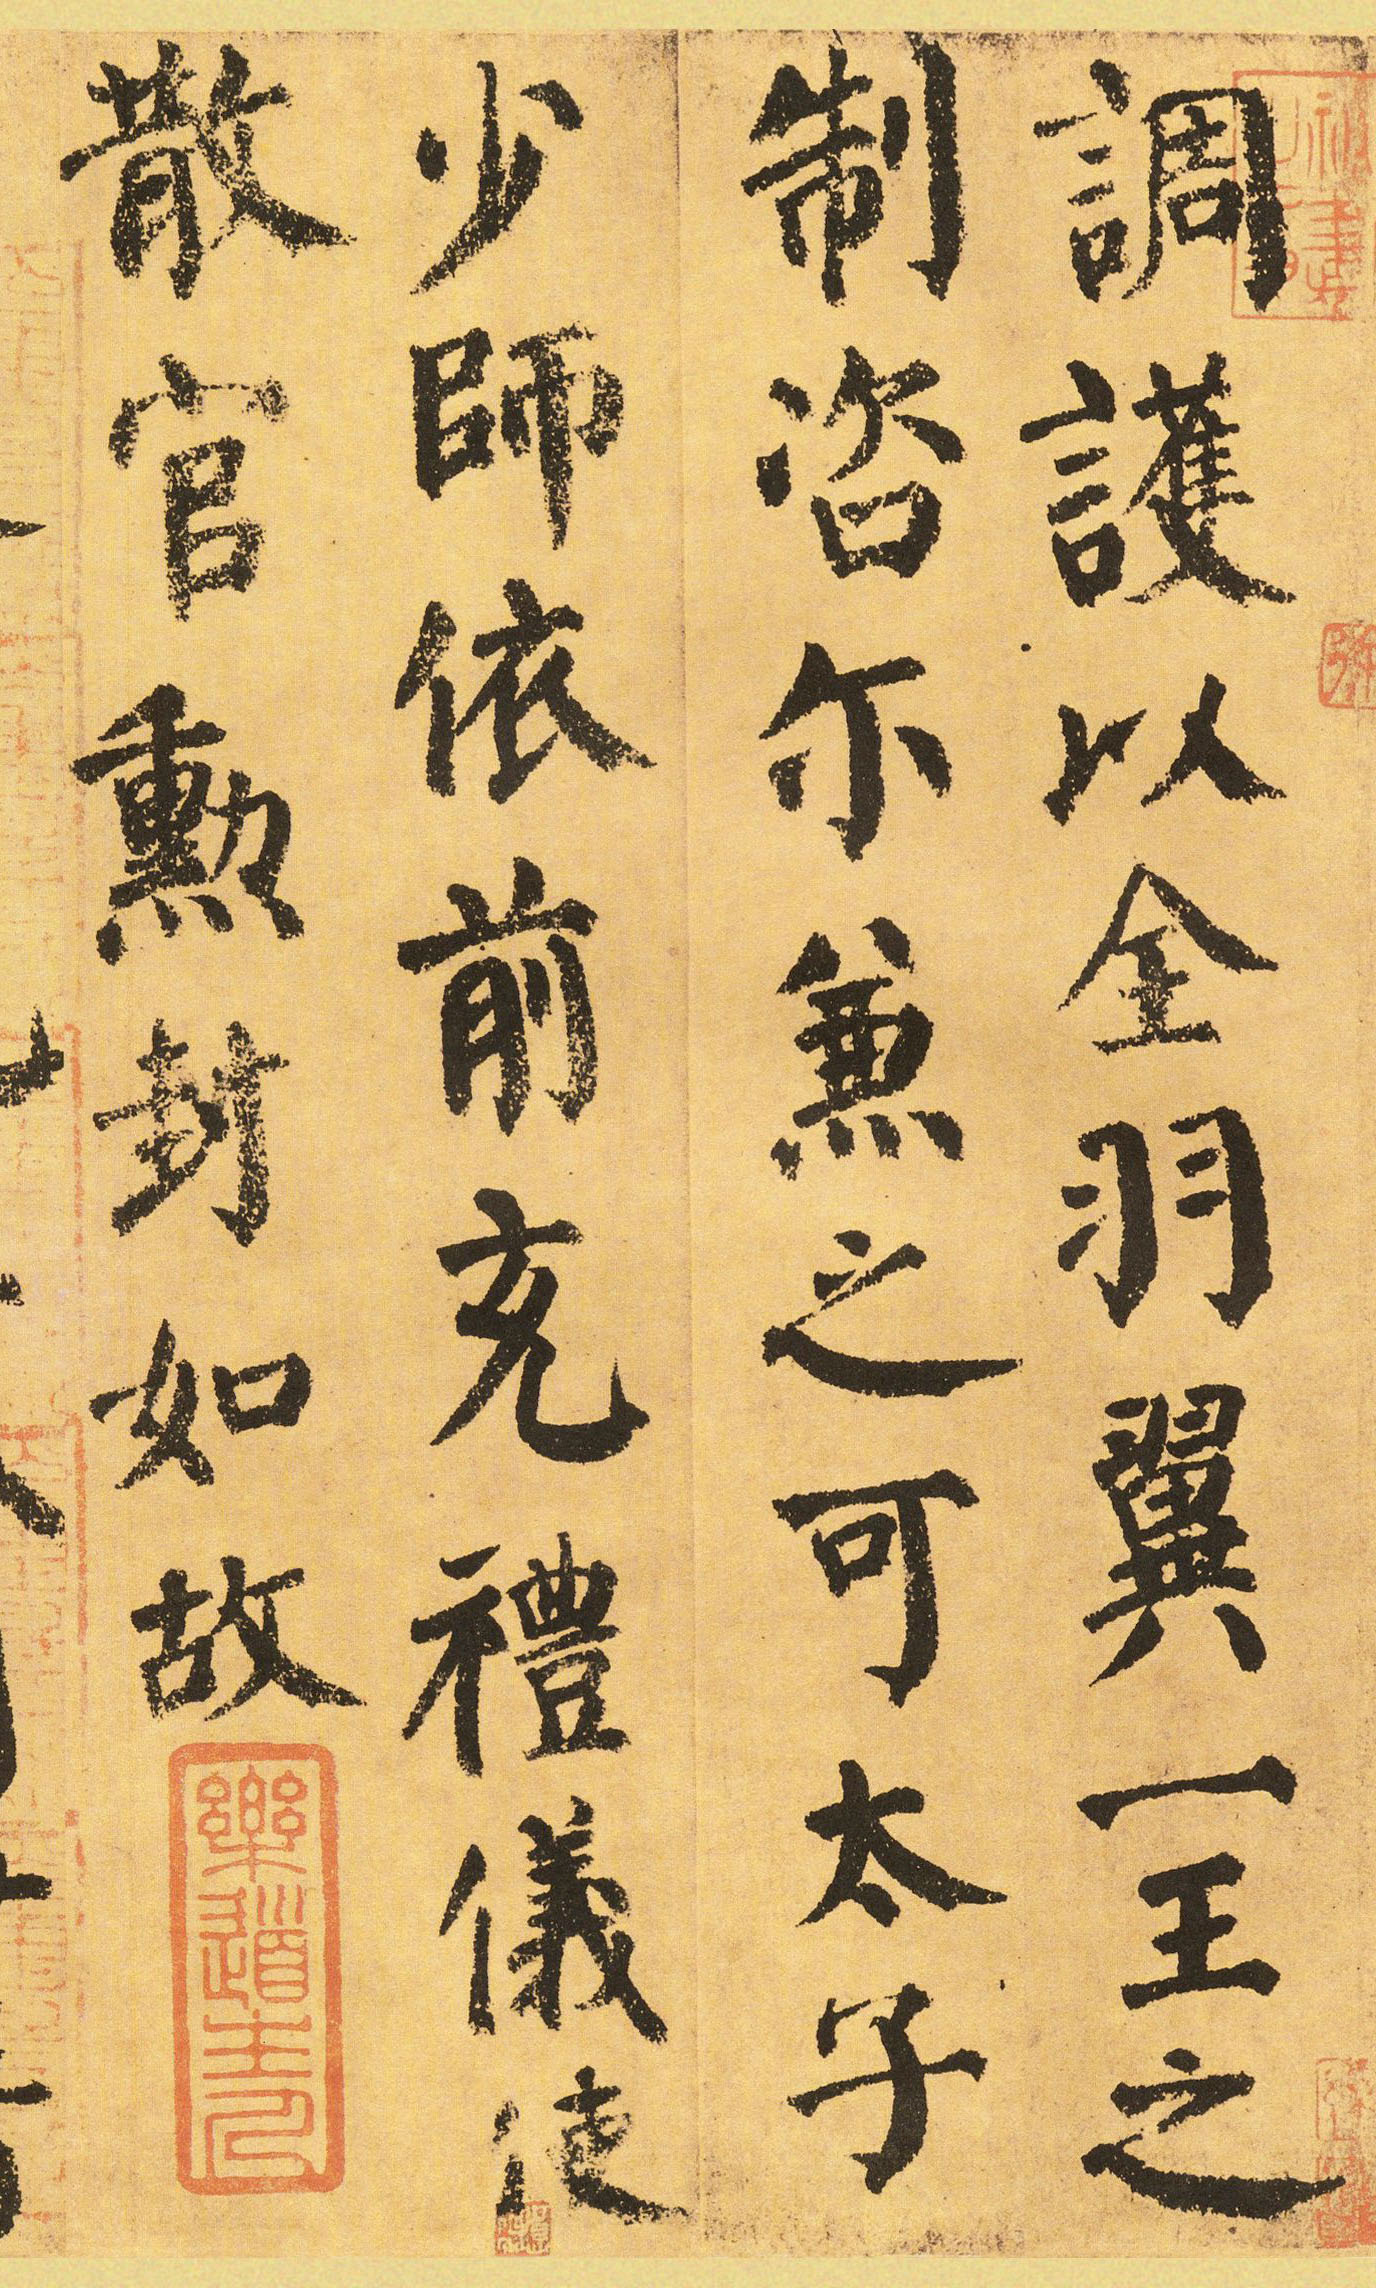 調護以全羽翼一王之
制咨尔兼之可太子
少師依前充禮儀使
散官勲封如故
樂道主人